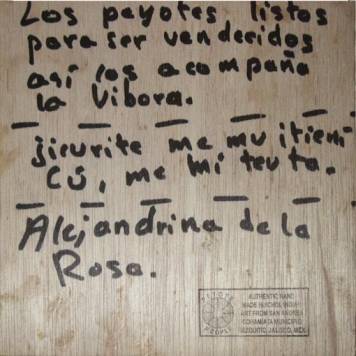 Los peyotes listos
para ser vendecidos
así los acompaña
la Vibora.
jicurite me mu itieni
cú, me mi teu ta.
Alejandrina de la
Rosa.
AUTHENTIC HAND
MADE HUICHOL INDIAN
ART FROM SAN ANDRES
COHAMIATA MUNICIPIO
MEZQUITIC, JALISCO, MEX.
PEOPLE